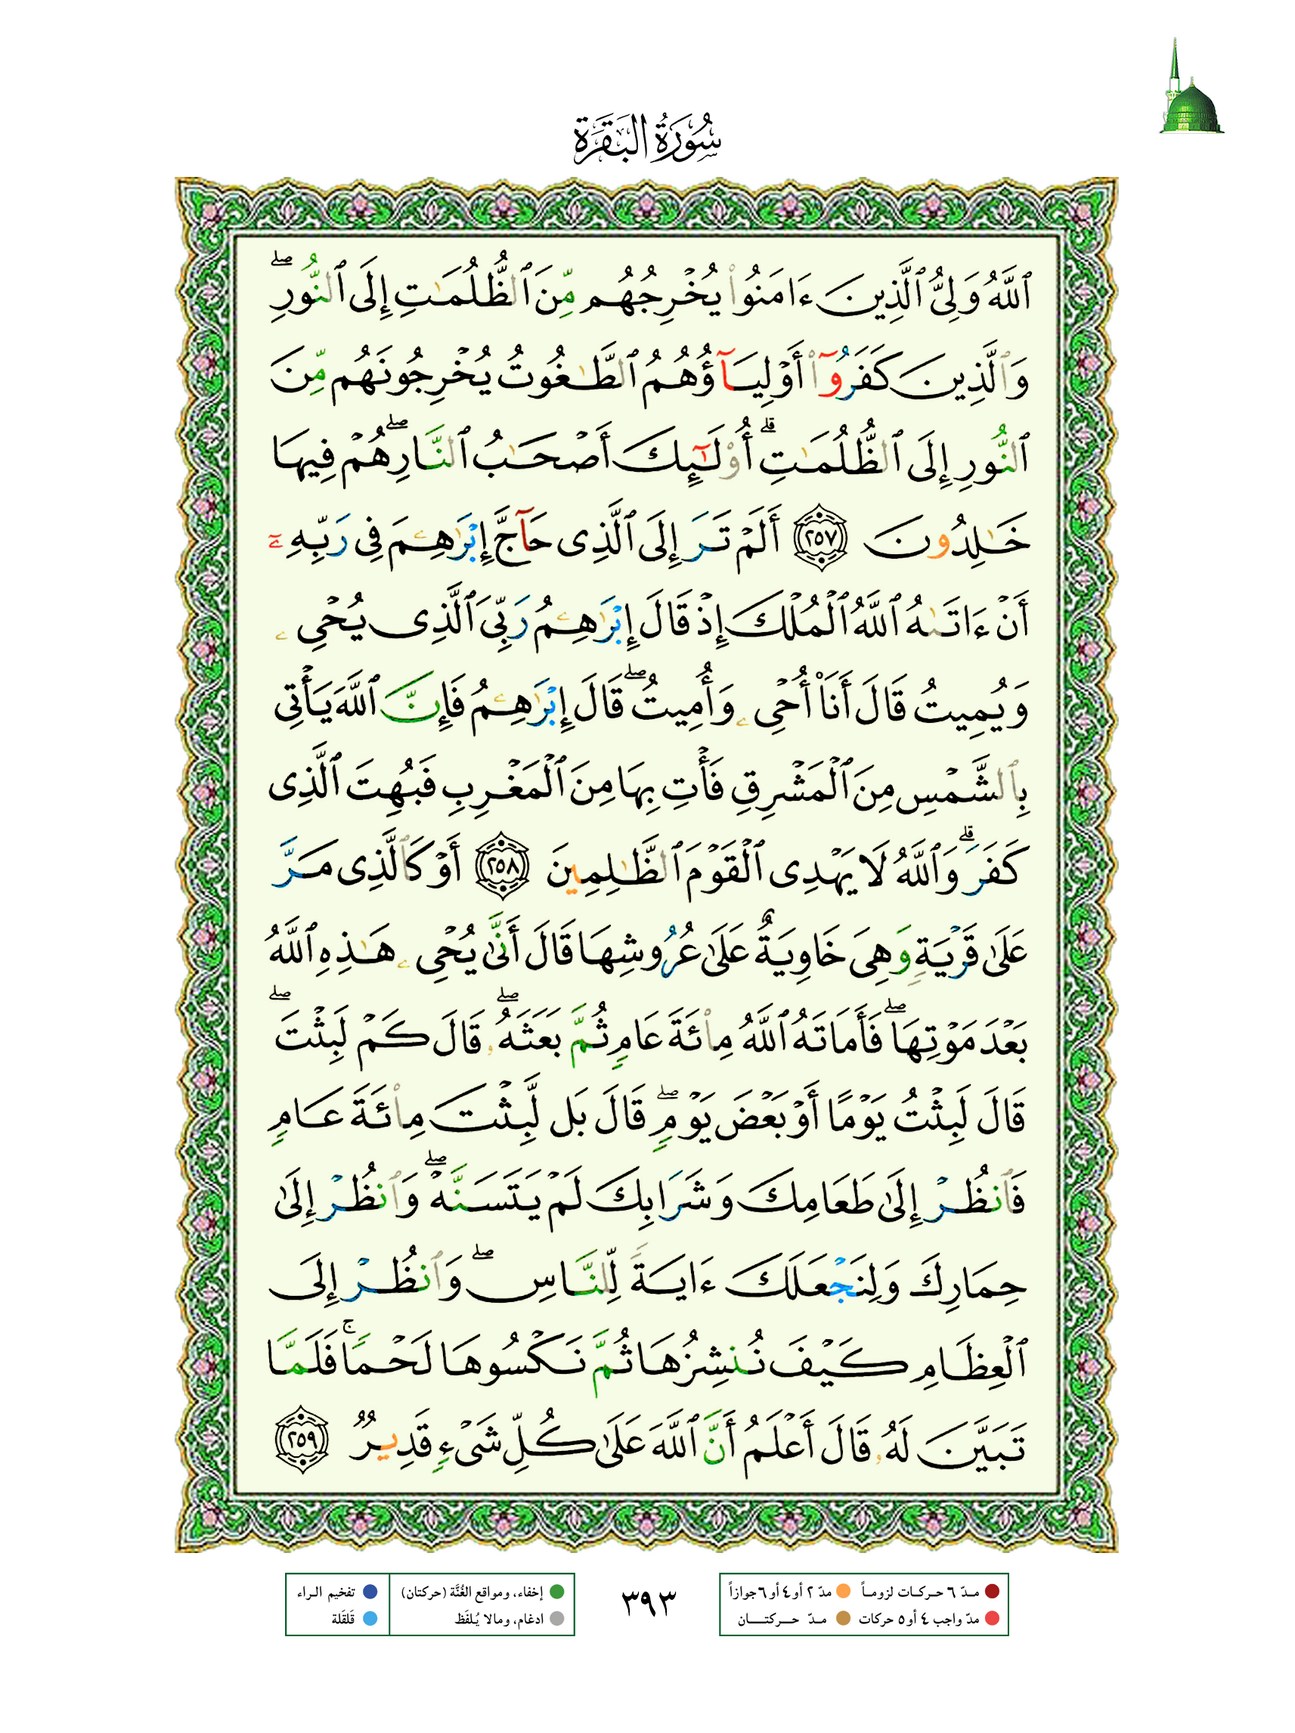 سُورَةُ البَقَرَة
ٱللَّهُ وَلِيُّ ٱلَّذِينَ ءَامَنُوا۟ يُخْرِجُهُم مِّنَ ٱلظُّلُمَـٰتِ إِلَى ٱلنُّورِ ۖ
وَٱلَّذِينَ كَفَرُوٓا۟ أَوْلِيَآؤُهُمُ ٱلطَّـٰغُوتُ يُخْرِجُونَهُم مِّنَ
ٱلنُّورِ إِلَى ٱلظُّلُمَـٰتِ ۗ أُو۟لَـٰٓئِكَ أَصْحَـٰبُ ٱلنَّارِ ۖ هُمْ فِيهَا
خَـٰلِدُونَ ٢٥٧ أَلَمْ تَرَ إِلَى ٱلَّذِى حَآجَّ إِبْرَٰهِـۧمَ فِى رَبِّهِۦٓ
أَنْ ءَاتَىٰهُ ٱللَّهُ ٱلْمُلْكَ إِذْ قَالَ إِبْرَٰهِـۧمُ رَبِّىَ ٱلَّذِى يُحْىِۦ
وَيُمِيتُ قَالَ أَنَا۠ أُحْىِۦ وَأُمِيتُ ۖ قَالَ إِبْرَٰهِـۧمُ فَإِنَّ ٱللَّهَ يَأْتِى
بِٱلشَّمْسِ مِنَ ٱلْمَشْرِقِ فَأْتِ بِهَا مِنَ ٱلْمَغْرِبِ فَبُهِتَ ٱلَّذِى
كَفَرَ ۗ وَٱللَّهُ لَا يَهْدِى ٱلْقَوْمَ ٱلظَّـٰلِمِينَ ٢٥٨ أَوْ كَٱلَّذِى مَرَّ
عَلَىٰ قَرْيَةٍ وَهِىَ خَاوِيَةٌ عَلَىٰ عُرُوشِهَا قَالَ أَنَّىٰ يُحْىِۦ هَـٰذِهِ ٱللَّهُ
بَعْدَ مَوْتِهَا ۖ فَأَمَاتَهُ ٱللَّهُ مِا۟ئَةَ عَامٍ ثُمَّ بَعَثَهُۥ ۖ قَالَ كَمْ لَبِثْتَ ۖ
قَالَ لَبِثْتُ يَوْمًا أَوْ بَعْضَ يَوْمٍ ۖ قَالَ بَل لَّبِثْتَ مِا۟ئَةَ عَامٍ
فَٱنظُرْ إِلَىٰ طَعَامِكَ وَشَرَابِكَ لَمْ يَتَسَنَّهْ ۖ وَٱنظُرْ إِلَىٰ
حِمَارِكَ وَلِنَجْعَلَكَ ءَايَةً لِّلنَّاسِ ۖ وَٱنظُرْ إِلَى
ٱلْعِظَامِ كَيْفَ نُنشِزُهَا ثُمَّ نَكْسُوهَا لَحْمًا ۚ فَلَمَّا
تَبَيَّنَ لَهُۥ قَالَ أَعْلَمُ أَنَّ ٱللَّهَ عَلَىٰ كُلِّ شَىْءٍ قَدِيرٌ ٢٥٩
مـدّ ٦ حـركـات لزومـاً مدّ ٢ أو ٤ أو ٦ جوازاً
مدّ واجب ٤ أو ٥ حركات مـدّ حـــركتـــان
٣٩٣
إخفاء، ومواقع الغُنَّة (حركتان) تفخيم الـراء
ادغام، ومالا يُـلفَظ قَلقَلة